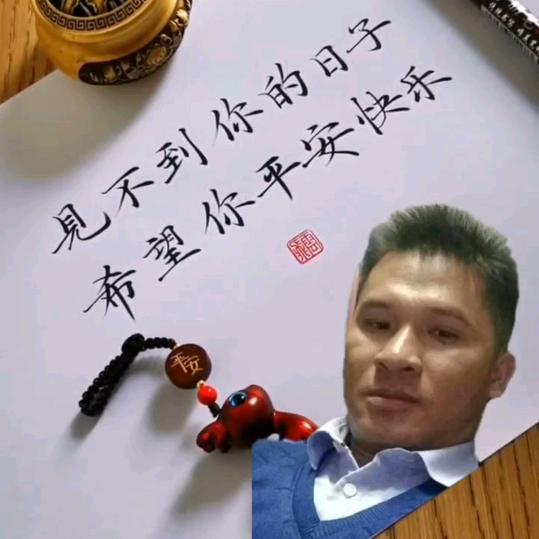 見不到你的日子
希望你平安快乐
平安